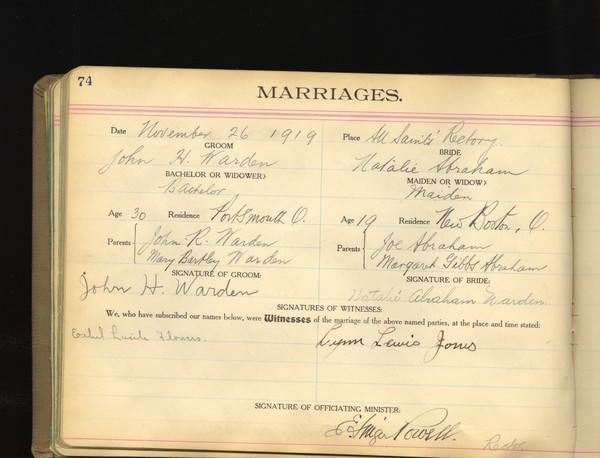 74
MARRIAGES.
Date November 26 1919 Place All Saints' Rectory.
GROOM BRIDE
John H. Warden Natalie Abraham
BACHELOR OR WIDOWER? MAIDEN OR WIDOW?
Bachelor Maiden
Age 30 Residence Portsmouth O. Age 19 Residence New Boston, O.
Parents John R. Warden Parents Joe Abraham
Mary Bartley Warden Margaret Gibbs Abraham
SIGNATURE OF GROOM: SIGNATURE OF BRIDE:
John H. Warden Natalie Abraham Warden
SIGNATURES OF WITNESSES:
We, who have subscribed our names below, were Witnesses of the marriage of the above named parties, at the place and time stated:
Ethel Lucile Flowers. Lynn Lewis Jones
SIGNATURE OF OFFICIATING MINISTER:
Powell.
Rector